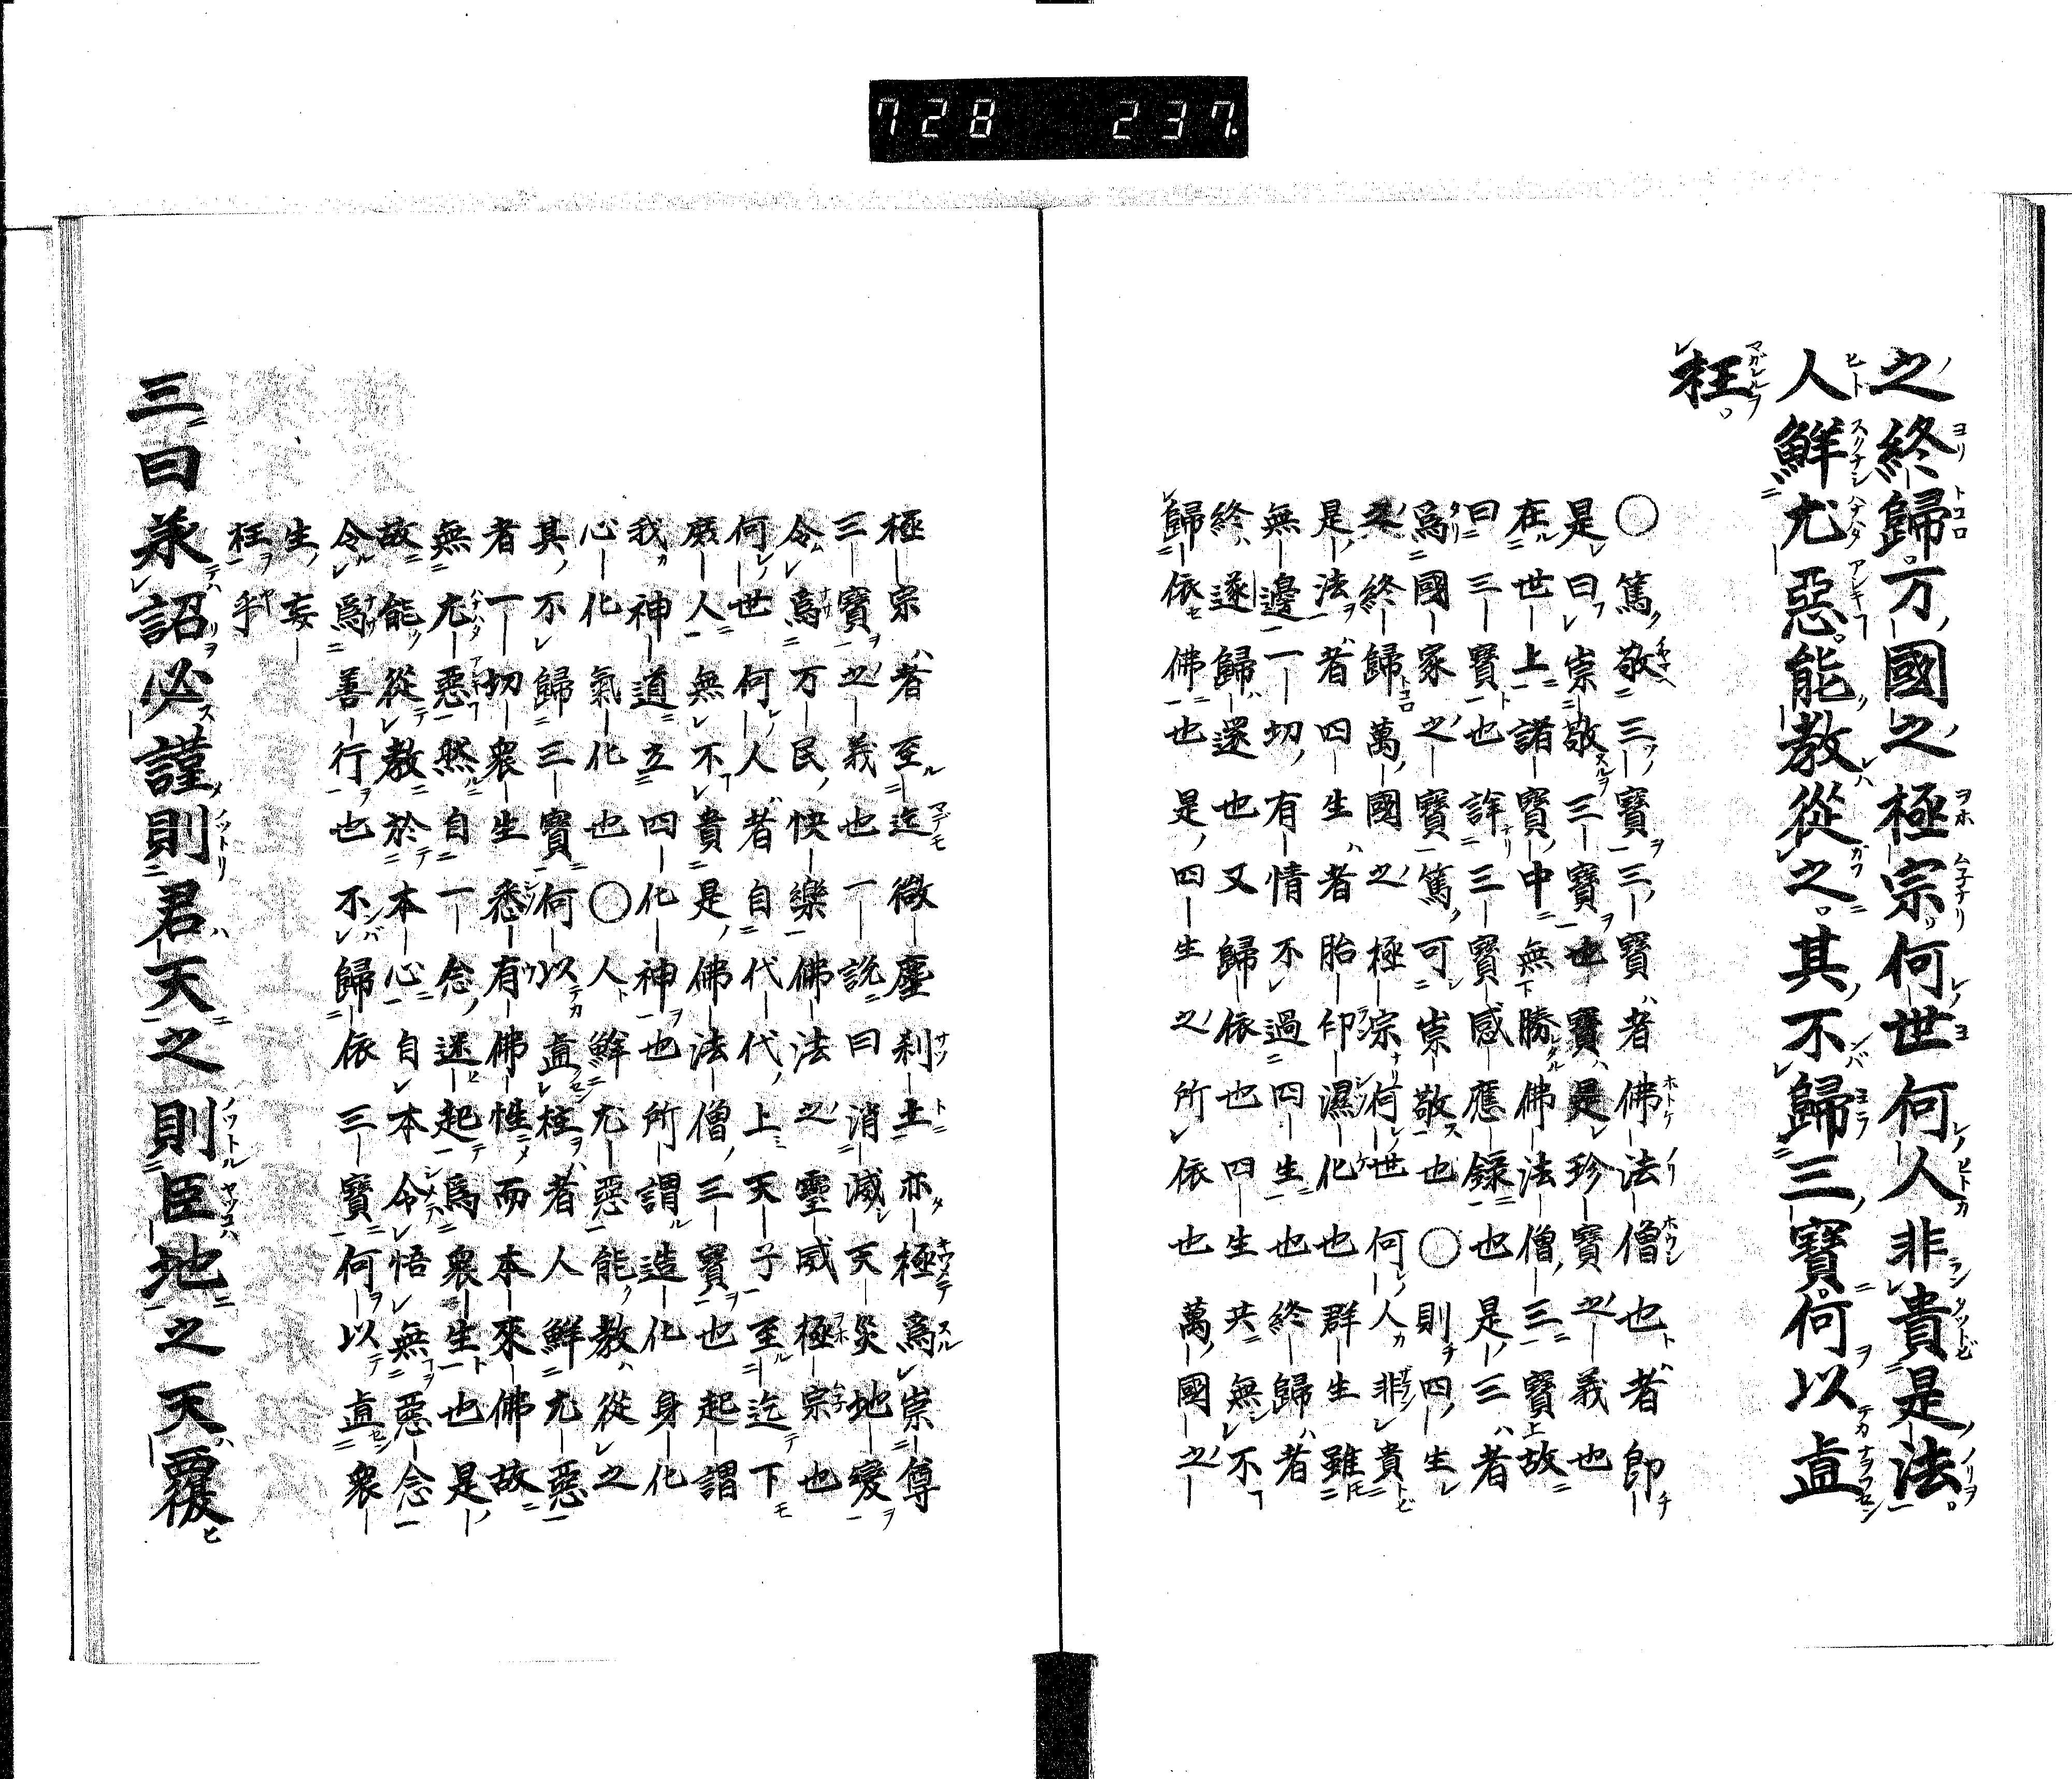 728 237
之終歸万國之極宗何世何人非貴是法
人鮮尤惡能教從之其不歸三寶何以直
枉
○篤敬三寶三寶者佛法僧也者即
是曰崇敬三寶也寶是珍寶之義也
在世上諸寶中無勝佛法僧三寶故
曰三寶也詳三寶感應録也是三者
爲國家之寶篤可崇敬也○則四生
之終歸萬國之極宗何世何人非貴
是法者四生者胎卵濕化也群生雖
無邊一切有情不過四生也終歸者
終遂歸還也又歸依也四生共無不
歸依佛也是四生之所依也萬國之
極宗者至迄微塵刹土亦極爲崇尊
三寶之義也一説曰消滅天災地變
令爲万民快樂佛法之靈威極宗也
何世何人者自代代上天子至迄下
庶人無不貴是佛法僧三寶也起謂
我神道立四化神也所謂造化身化
心化氣化也○人鮮尤惡能教從之
其不歸三寶何以直枉者人鮮尤惡
者一切衆生悉有佛性而本來佛故
無尤惡然自一念迷起爲衆生也是
故能從教於本心自本令悟無惡念
令爲善行也不歸依三寶何以直衆
生妄
枉乎
三曰兼詔必謹則君天之則臣地之天覆